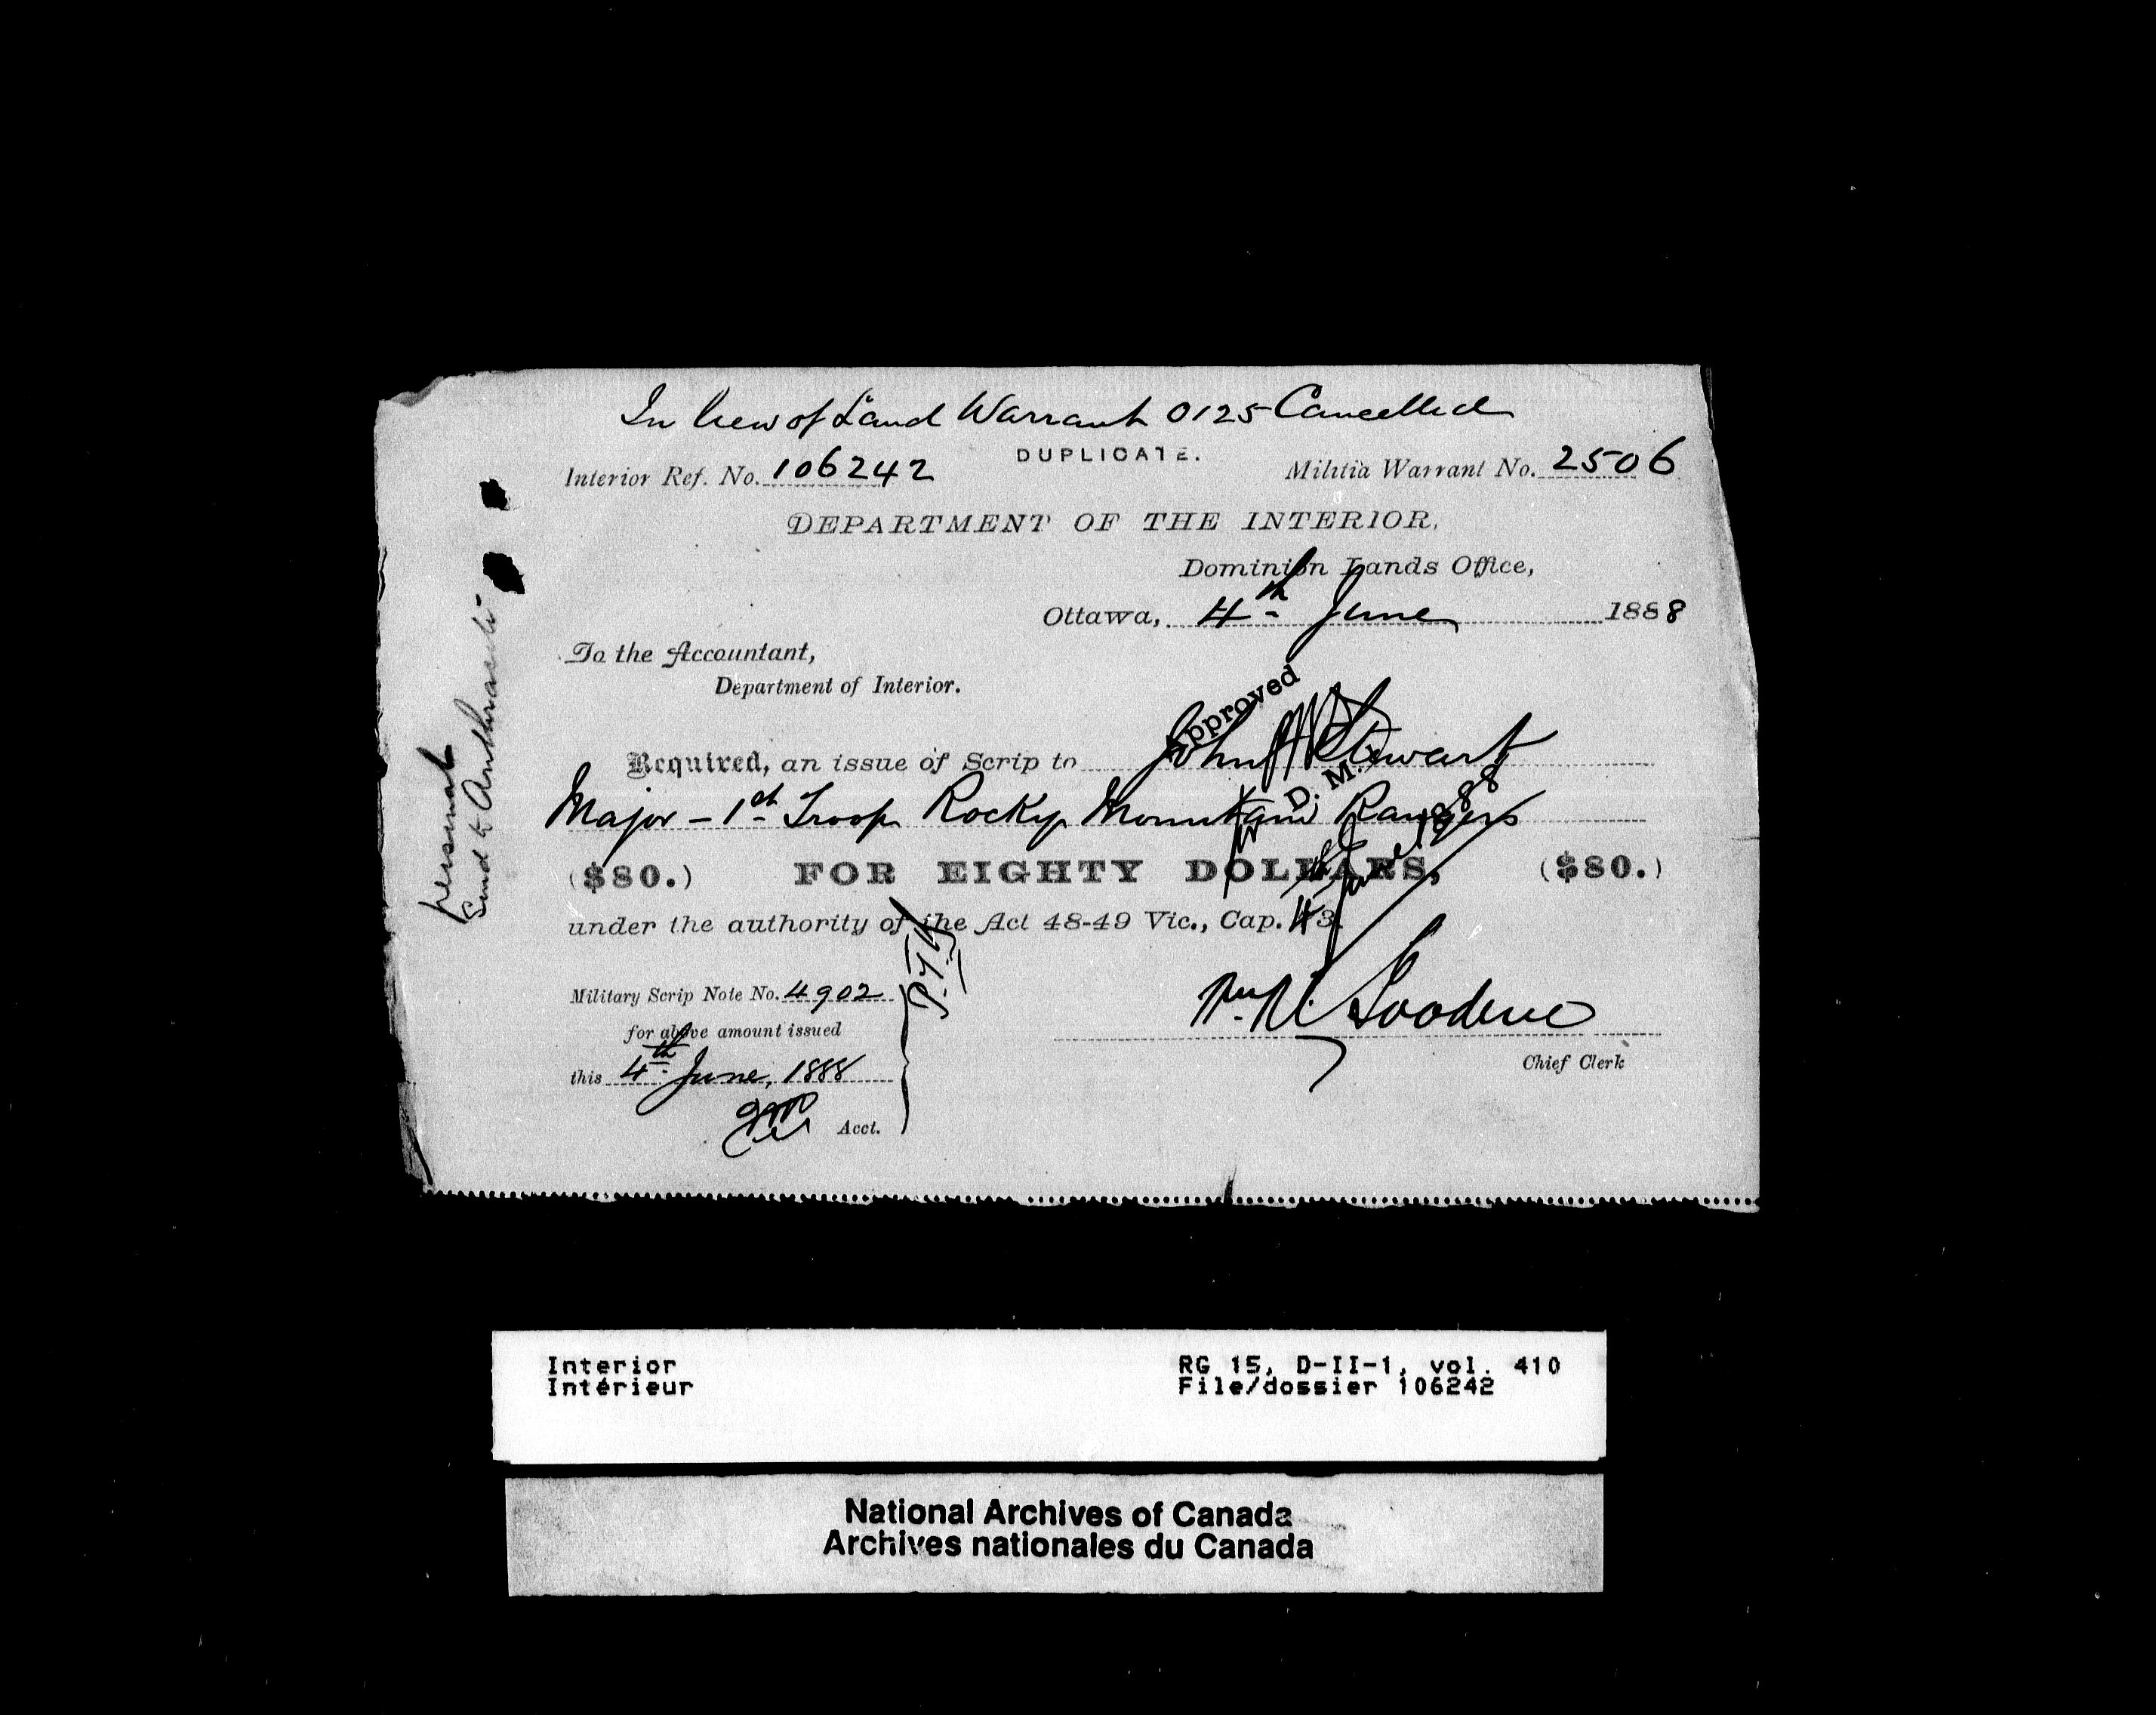 In lieu of Land Warrant 0125 Cancelled
DUPLICATE.
Interior Ref. No. 106242
Militia Warrant No. 2506
DEPARTMENT OF THE INTERIOR,
Dominion Lands Office,
Ottawa, 4th June 1888
To the Accountant,
Department of Interior.
Approved
Required, an issue of Scrip to John Stewart
D. M.
Major - 1st Troop Rocky Mountain Rangers
($80.) FOR EIGHTY DOLLARS, ($80.)
4th June 1888
under the authority of the Act 48-49 Vic., Cap. 73.
Military Scrip Note No. 4902
for above amount issued
this 4th June, 1888
Acct.
Chief Clerk
personal
Send to Anthracite
Interior
Intérieur
RG 15, D-II-1, vol. 410
File/dossier 106242
National Archives of Canada
Archives nationales du Canada